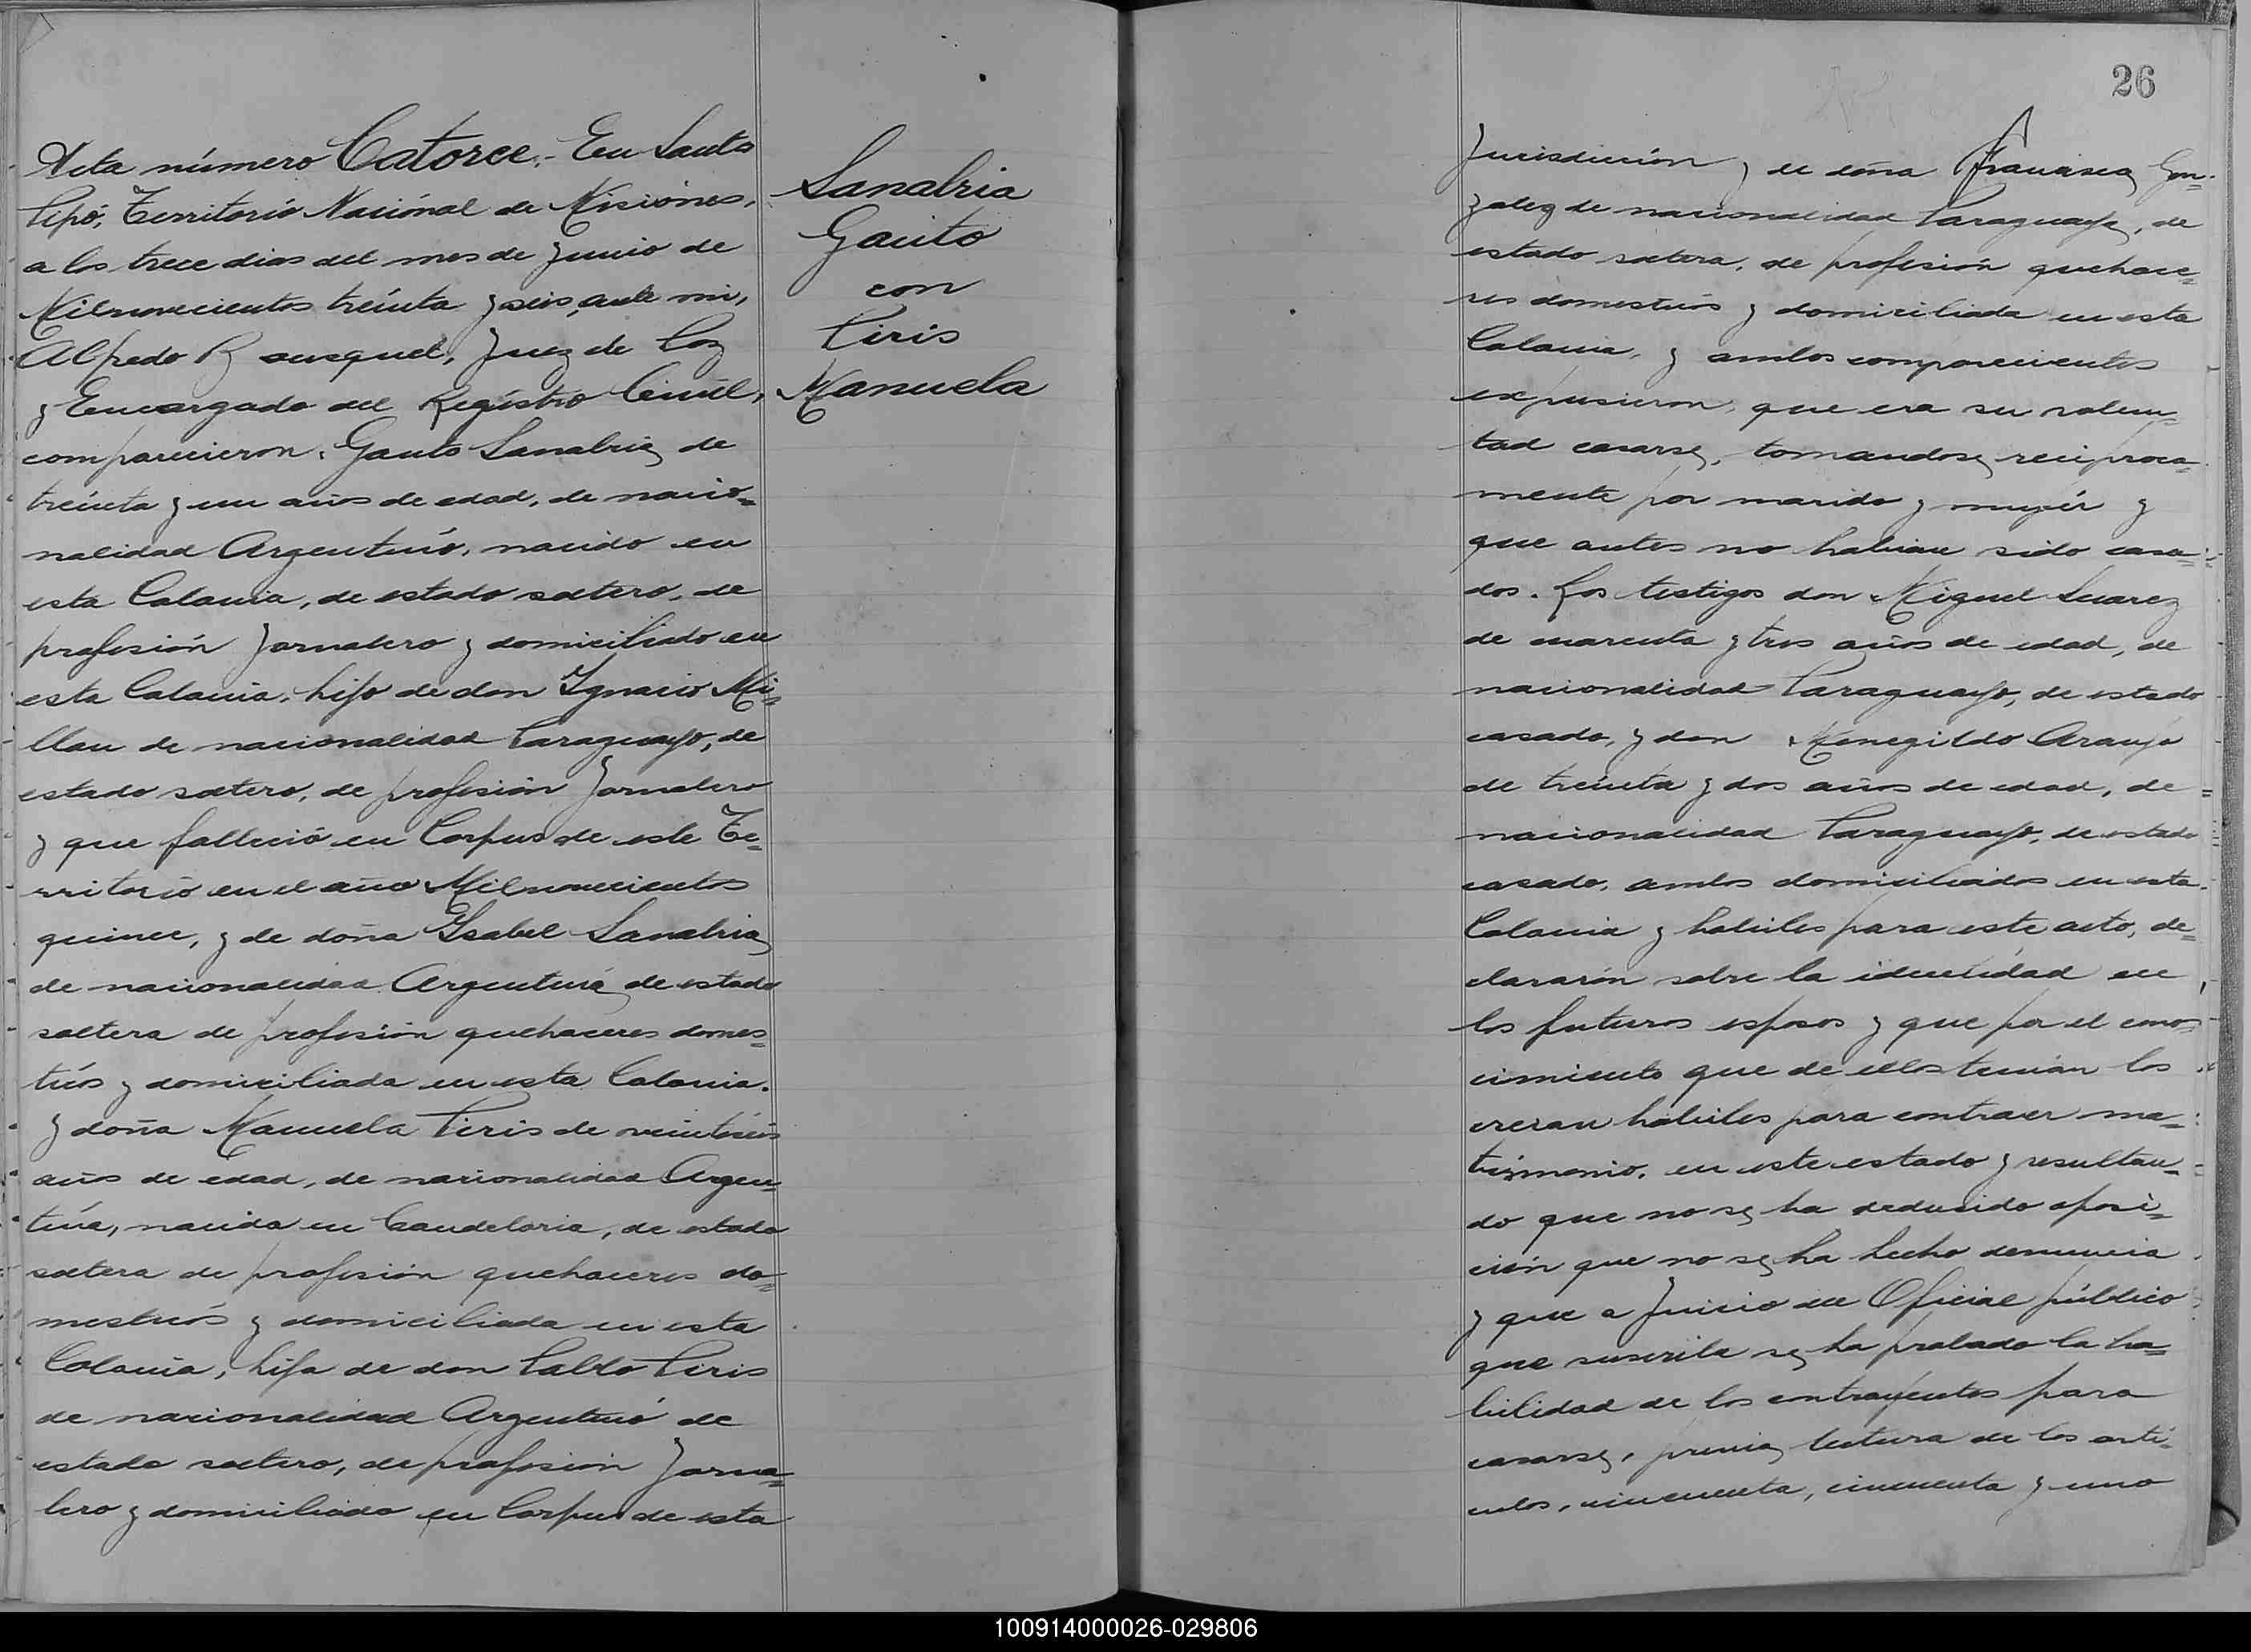 Acta número Catorce.- En Santo
Pipó, Territorio Naciónal de Misiónes,
a los trece dias del mes de Junio de
Milnovecientos tréinta y seis, ante mi,
Alfredo R ousquet, Juez de Paz
y Encargado del Registro Civil,
comparecieron: Gauto Sanabria, de
tréinta y un años de edad, de nacio=
nalidad Argentino, nacido en
esta Colonia, de estado soltero, de
profesión Jornalero y domiciliado en
esta Colonia, hijo de don Ygnacio Mi=
llan de nacionalidad Paraguayo, de
estado soltero, de profesión Jornalero
y que falleció en Corpus de este Te=
rritorio en el año Milnovecientos
quince, y de doña Ysabel Sanabria,
de nacionalidad Argentina, de estado
soltera de profesión quehaceres domes=
ticos y domiciliada en esta Colonia.
y doña Manuela Piris de veintiseis
años de edad, de nacionalidad Argen=
tina, nacida en Candelaria, de estado
soltera de profesión quehaceres do=
mesticos y domiciliada en esta
Colonia, hija de don Pablo Piris
de nacionalidad Argentino de
estado soltero, de profesión Jorna=
lero y domiciliado en Corpus de esta
Sanabria
Gauto
con
Piris
Manuela
26
Jurisdicción y de doña Francisca Gon=
zalez de nacionalidad Paraguaya, de
estado soltera, de profesión quehace=
res domesticos y domiciliada en esta
Colonia, y ambos comparecientes
expusieron, que era su volun=
tad casarse, tomandose reciproca=
mente por marido y mujér y
que antes no habian sido casa=
dos. Los testigos don Miguel Suarez
de cuarenta y tres años de edad, de
nacionalidad Paraguayo, de estado
casado, y don Menegildo Araujo
de tréinta y dos años de edad, de
nacionalidad Paraguayo, de estado
casado, ambos domiciliados en esta
Colonia y habiles para este acto, de=
clararón sobre la identidad de
los futuros esposos y que por el cono=
cimiento que de ellos tenian los
creian habiles para contraer ma=
trimonio, en este estado y resultan=
do que no se ha deducido oposi=
ción que no se ha hecho denuncia
y que a Juicio del Oficial público
que suscribe se ha probado la ha=
bilidad de los contrayéntes para
casarse, previa lectura de los arti=
culos, cincuenta, cincuenta y uno
100914000026-029806